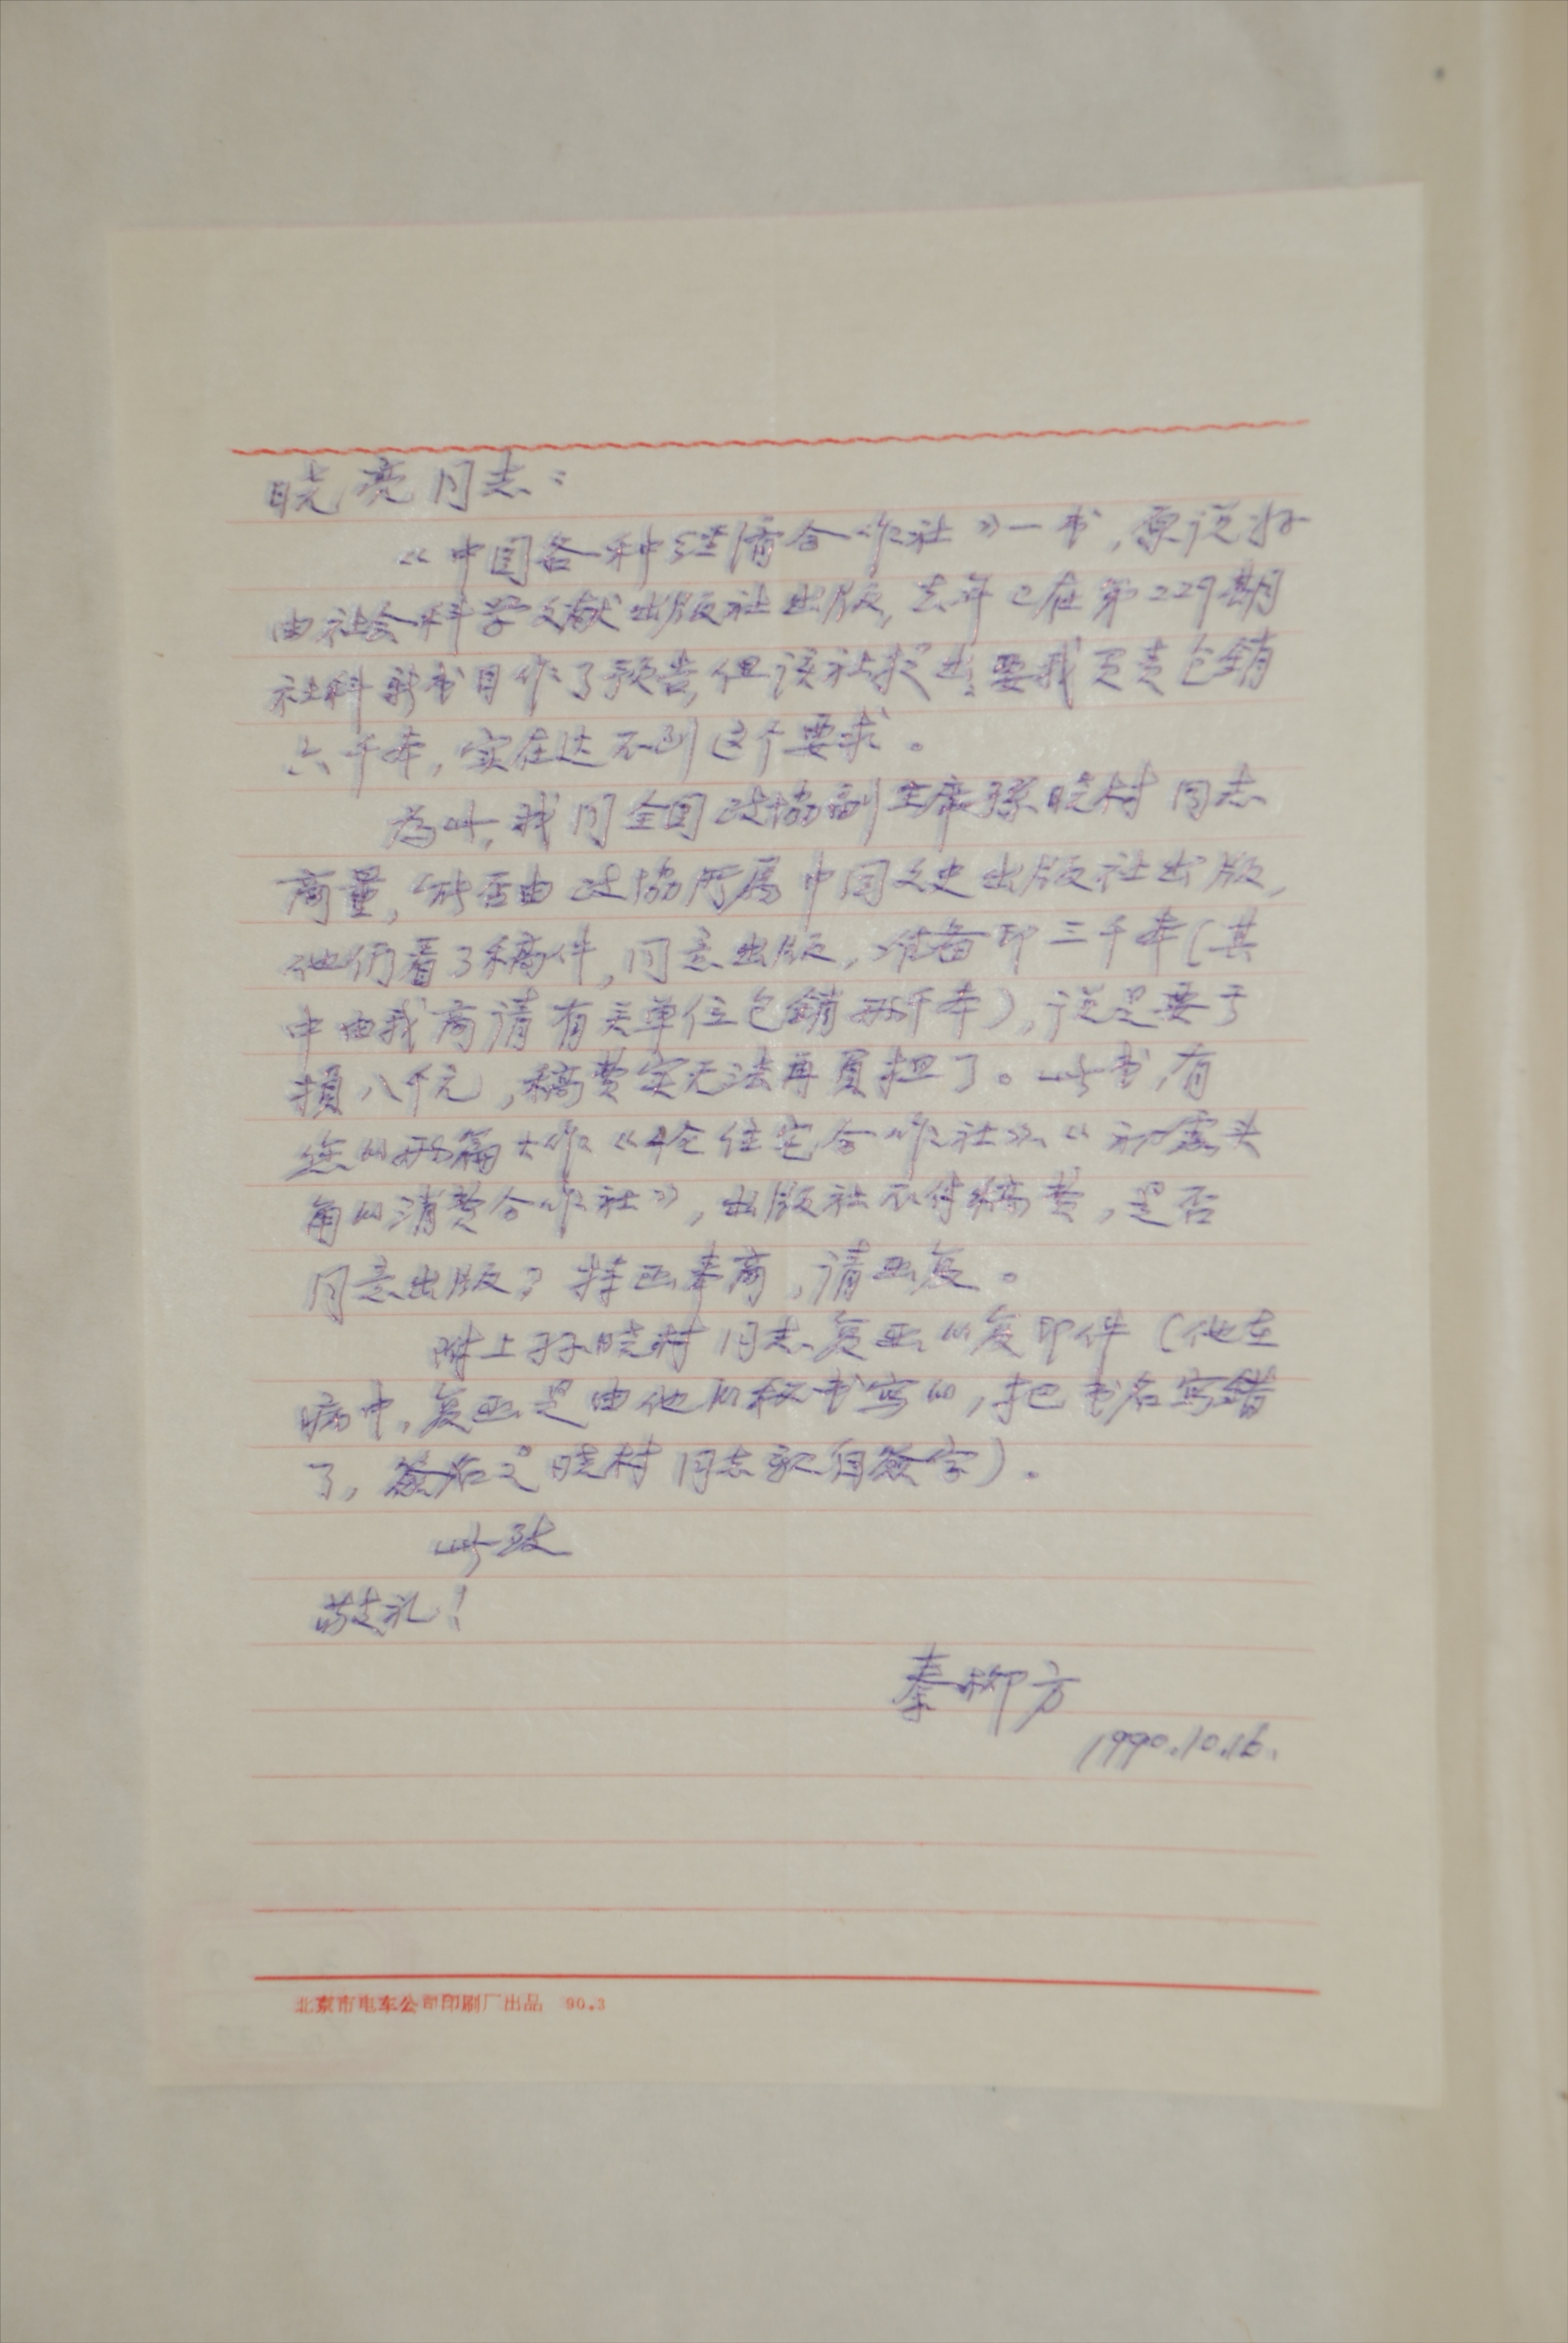 晓亮同志：
《中国各种经济合作社》一书，原说好
由社会科学文献出版社出版，去年已在第229期
社科新书目作了预告，但该社提出要我负责包销
六千本，实在达不到这个要求。
为此，我同全国政协副主席孙晓村同志
商量，能否由政协所属中国文史出版社出版，
他们看了稿件，同意出版，准备印三千本（其
中由我商请有关单位包销两千本），说是要亏
损八千元，稿费实无法再负担了。此书，有
您的两篇大作《住宅合作社》、《初露头
角的消费合作社》，出版社不付稿费，是否
同意出版？特函奉商，请函复。
附上孙晓村同志复函的复印件（他在
病中，复函是由他的秘书写的，把书名写错
了，最后是晓村同志亲自签字）。
此致
敬礼！
秦柳方
1990.10.16.
北京市电车公司印刷厂出品 90.3